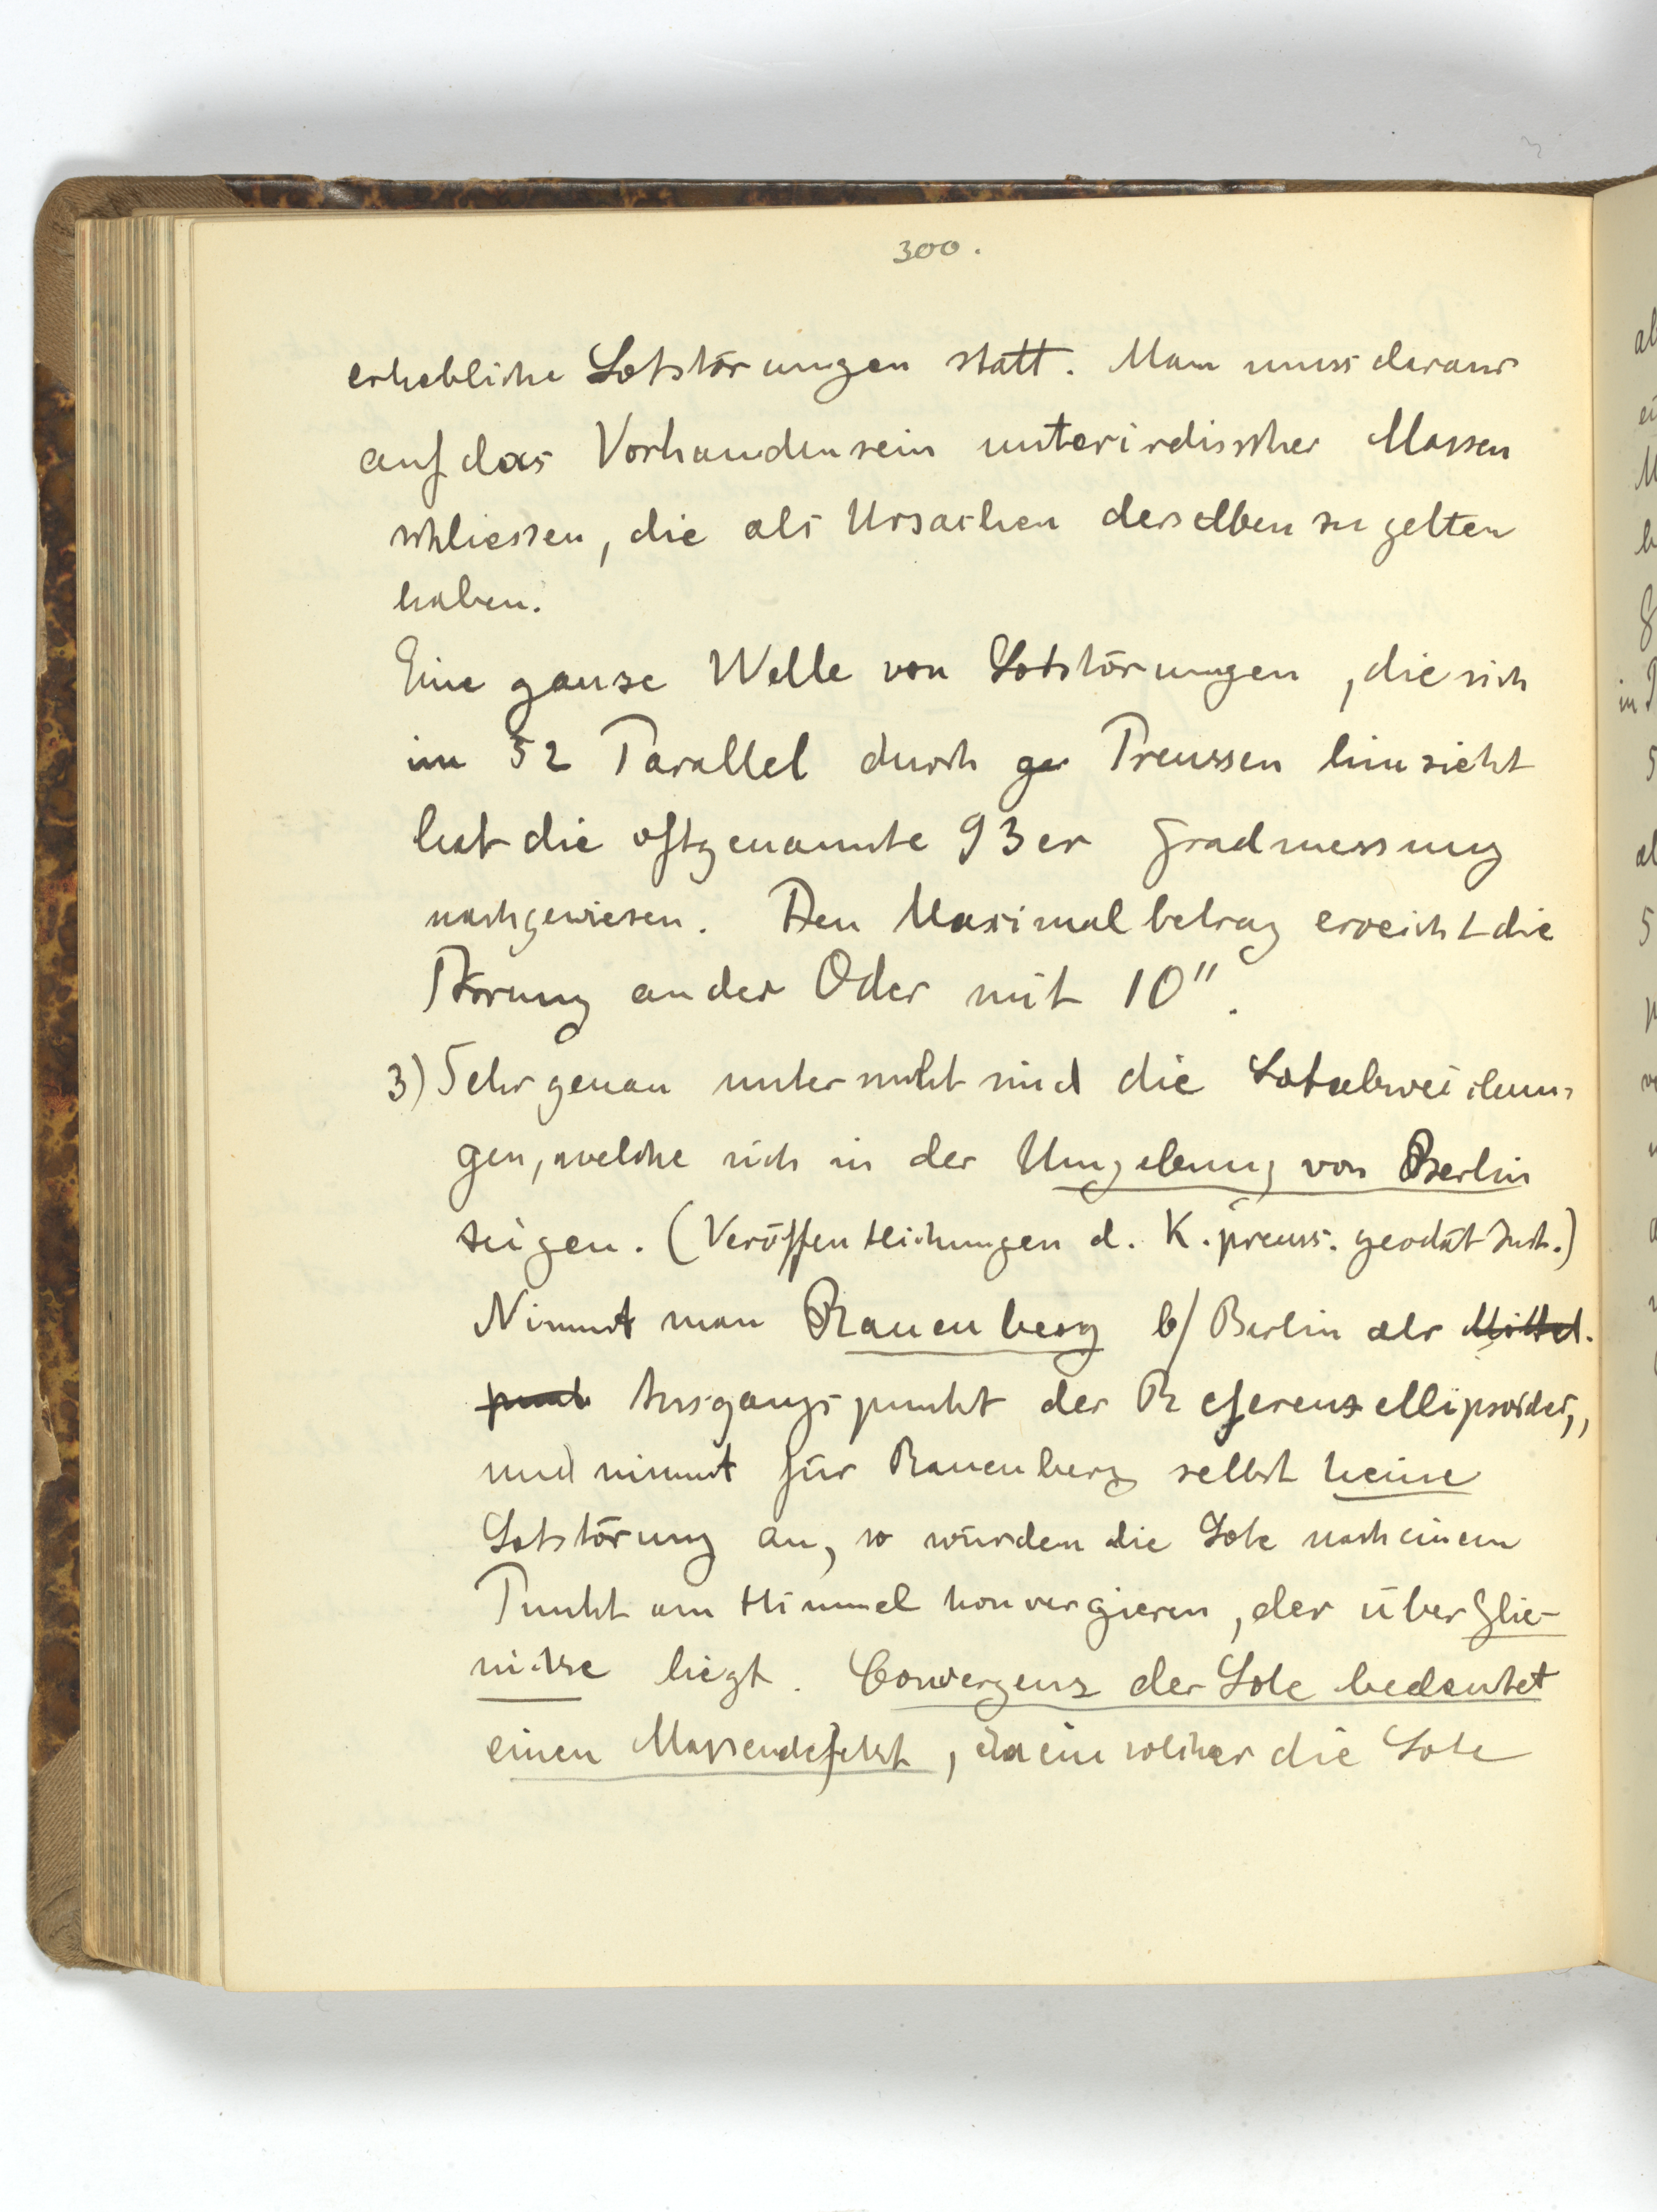 300.
erhebliche Lotstörungen statt. Man muss daraus
auf das Vorhandensein unterirdischer Massen
schliessen, die als Ursachen derselben zu gelten
haben.
Eine ganze Welle von Lotstörungen, die sich
im 52 Parallel durch ge Preussen hinzieht
hat die oftgenannte 93er Gradmessung
nachgewiesen. Den Maximalbetrag erreicht die
Störung an der Oder mit 10".
3) Sehr genau untersucht sind die Lotabweichun-
gen, welche sich in der Umgebung von Berlin
zeigen. (Veröffentlichungen d. K. preuss. geodät Inst.)
Nimmt man Rauenberg b/ Berlin als Mittel-
punkt Ausgangspunkt der Referenzellipsoides,
und nimmt für Rauenberg selbst keine
Lotstörung an, so würden die Lote nach einem
Punkt am Himmel konvergieren, der über Glie-
nicke liegt. Convergenz der Lote bedeutet
einen Massendefekt, da ein solcher die Lote